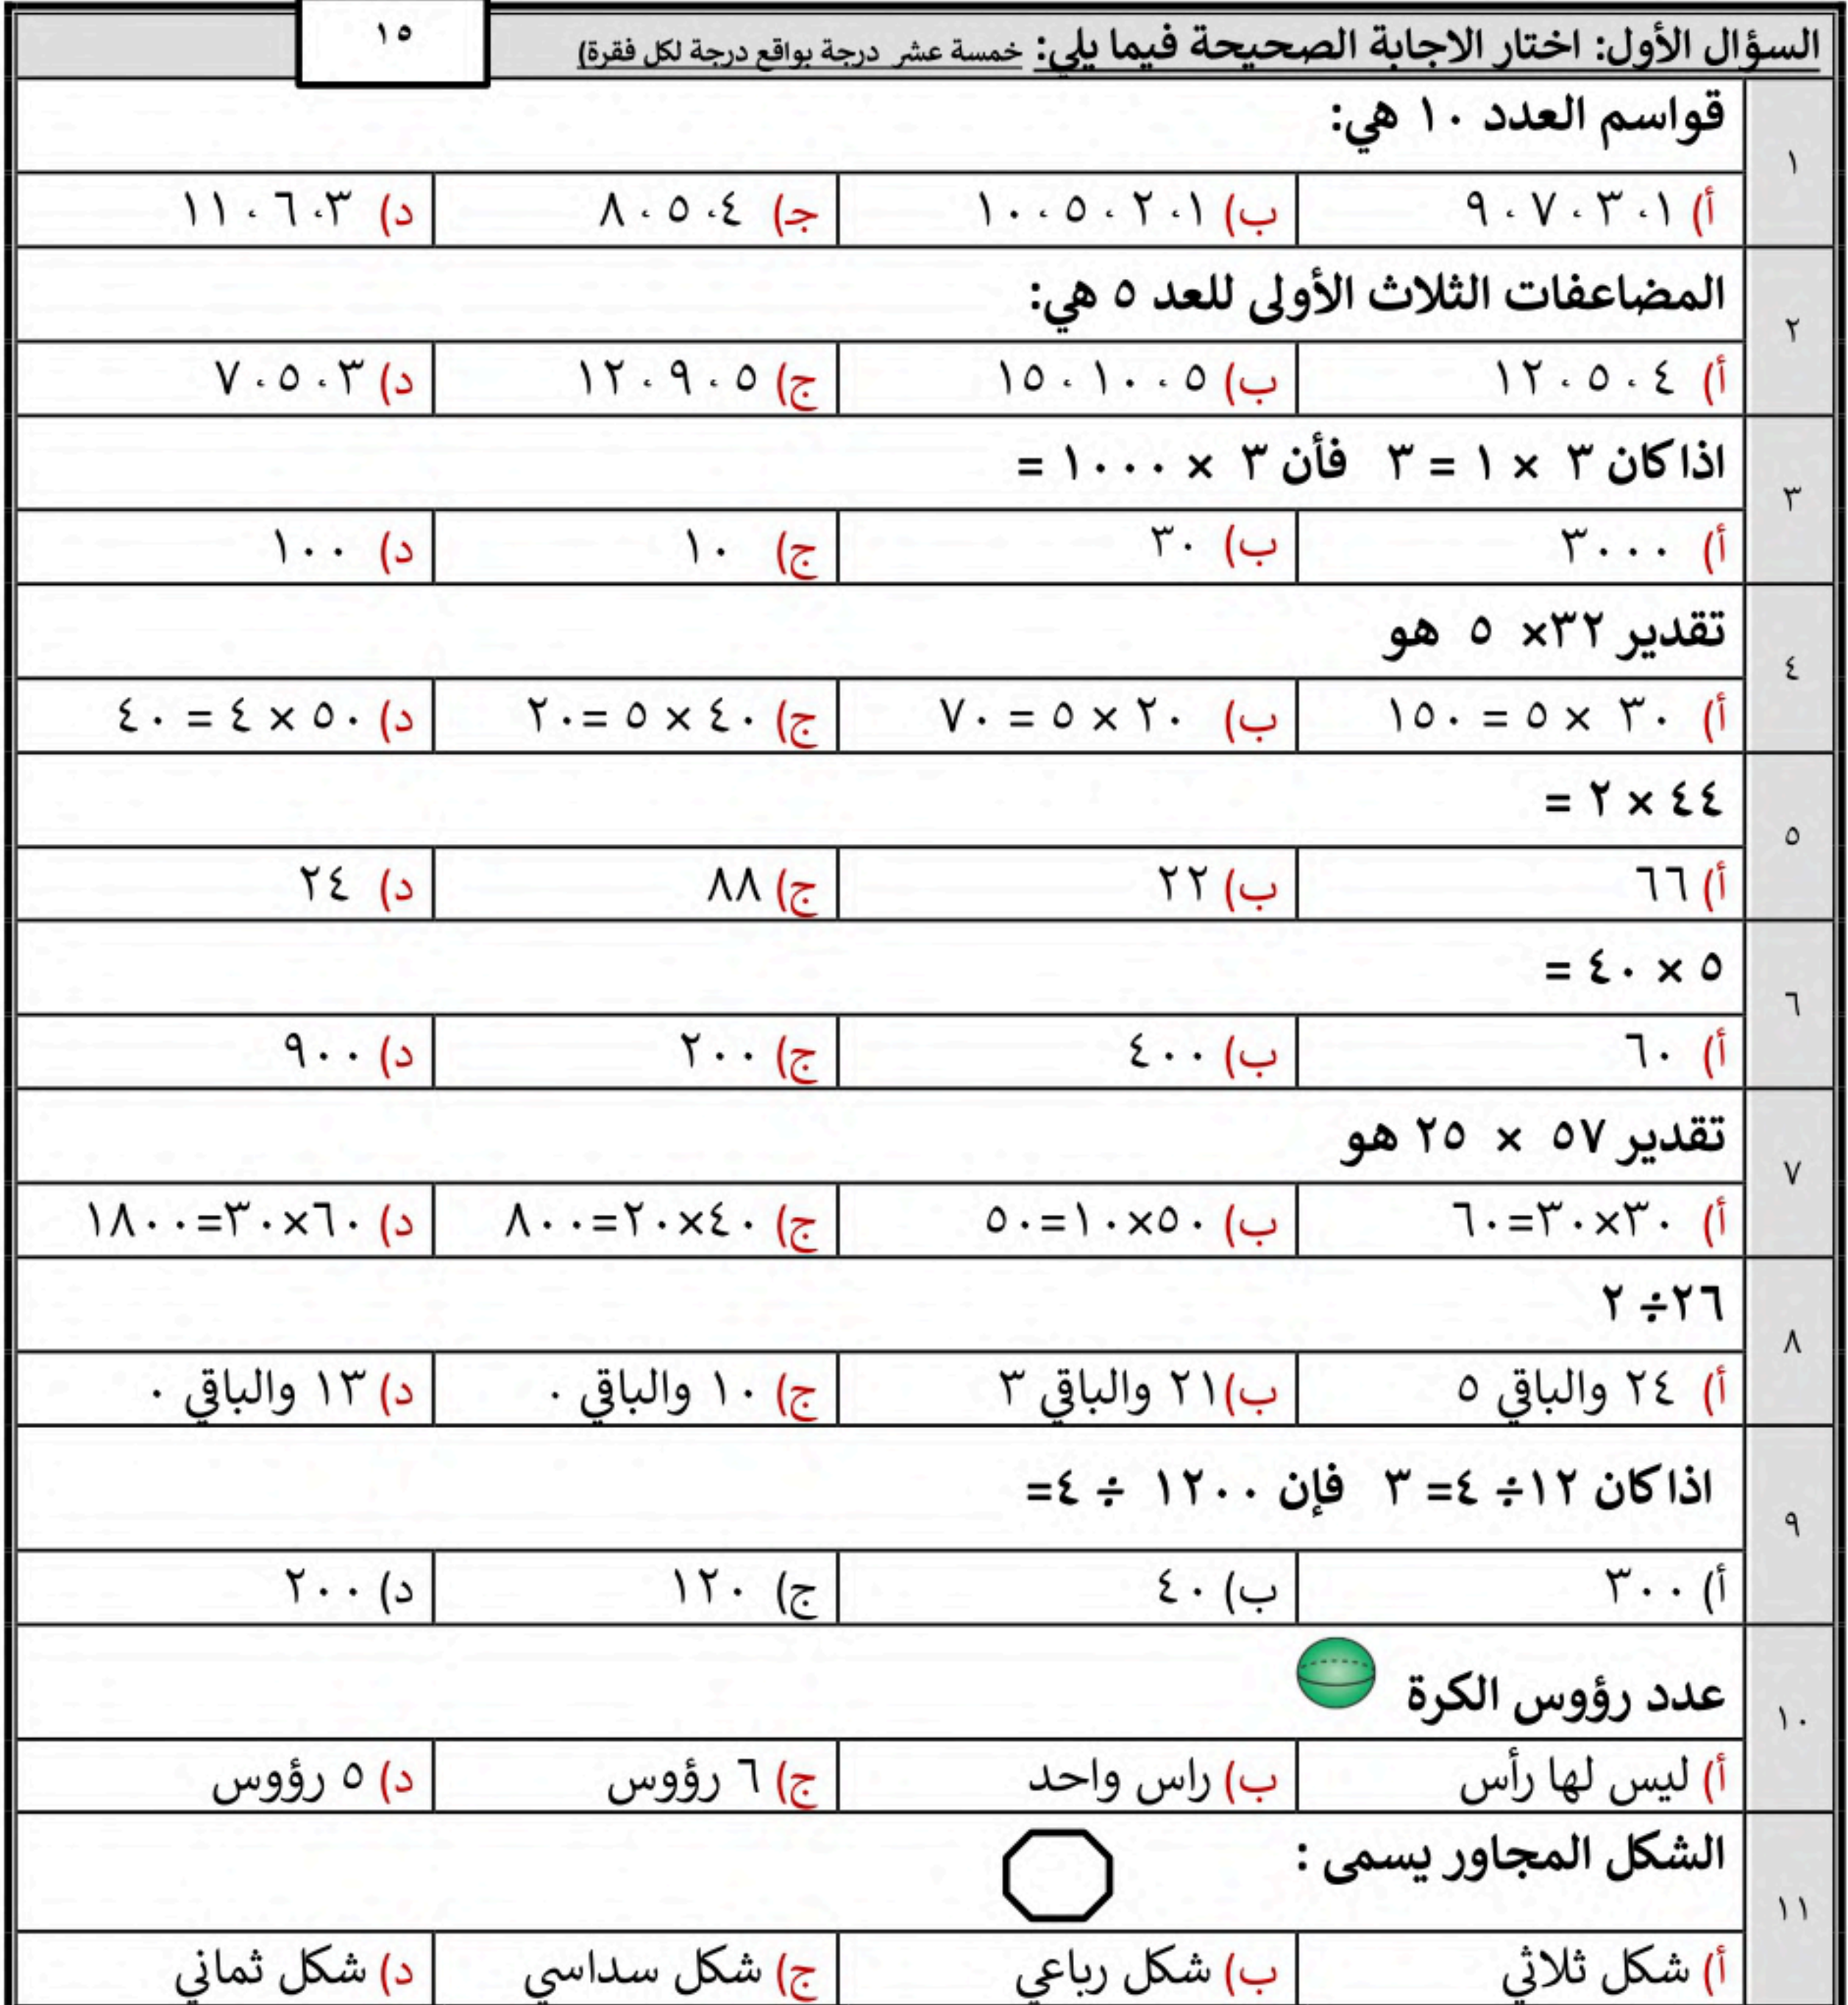 السؤال الأول: اختار الاجابة الصحيحة فيما يلي: خمسة عشر درجة بواقع درجة لكل فقرة)
١٥
١
قواسم العدد ١٠ هي:
أ) ١، ٣، ٧، ٩ ب) ١، ٢، ٥، ١٠ جـ) ٤، ٥، ٨ د) ٣، ٦، ١١
٢
المضاعفات الثلاث الأولى للعد ٥ هي:
أ) ٤، ٥، ١٢ ب) ٥، ١٠، ١٥ ج) ٥، ٩، ١٢ د) ٣، ٥، ٧
٣
اذا كان ٣ × ١ = ٣ فأن ٣ × ١٠٠٠ =
أ) ٣٠٠٠ ب) ٣٠ ج) ١٠ د) ١٠٠
٤
تقدير ٣٢× ٥ هو
أ) ٣٠ × ٥ = ١٥٠ ب) ٢٠ × ٥ = ٧٠ ج) ٤٠ × ٥ =٢٠ د) ٥٠ × ٤ = ٤٠
٥
٤٤ × ٢ =
أ) ٦٦ ب) ٢٢ ج) ٨٨ د) ٢٤
٦
٥ × ٤٠ =
أ) ٦٠ ب) ٤٠٠ ج) ٢٠٠ د) ٩٠٠
٧
تقدير ٥٧ × ٢٥ هو
أ) ٣٠×٣٠=٦٠ ب) ٥٠×١٠=٥٠ ج) ٤٠×٢٠=٨٠٠ د) ٦٠×٣٠=١٨٠٠
٨
٢٦÷ ٢
أ) ٢٤ والباقي ٥ ب) ٢١ والباقي ٣ ج) ١٠ والباقي ٠ د) ١٣ والباقي ٠
٩
اذا كان ١٢÷ ٤= ٣ فإن ١٢٠٠ ÷ ٤=
أ) ٣٠٠ ب) ٤٠ ج) ١٢٠ د) ٢٠٠
١٠
عدد رؤوس الكرة
أ) ليس لها رأس ب) راس واحد ج) ٦ رؤوس د) ٥ رؤوس
١١
الشكل المجاور يسمى :
أ) شكل ثلاثي ب) شكل رباعي ج) شكل سداسي د) شكل ثماني